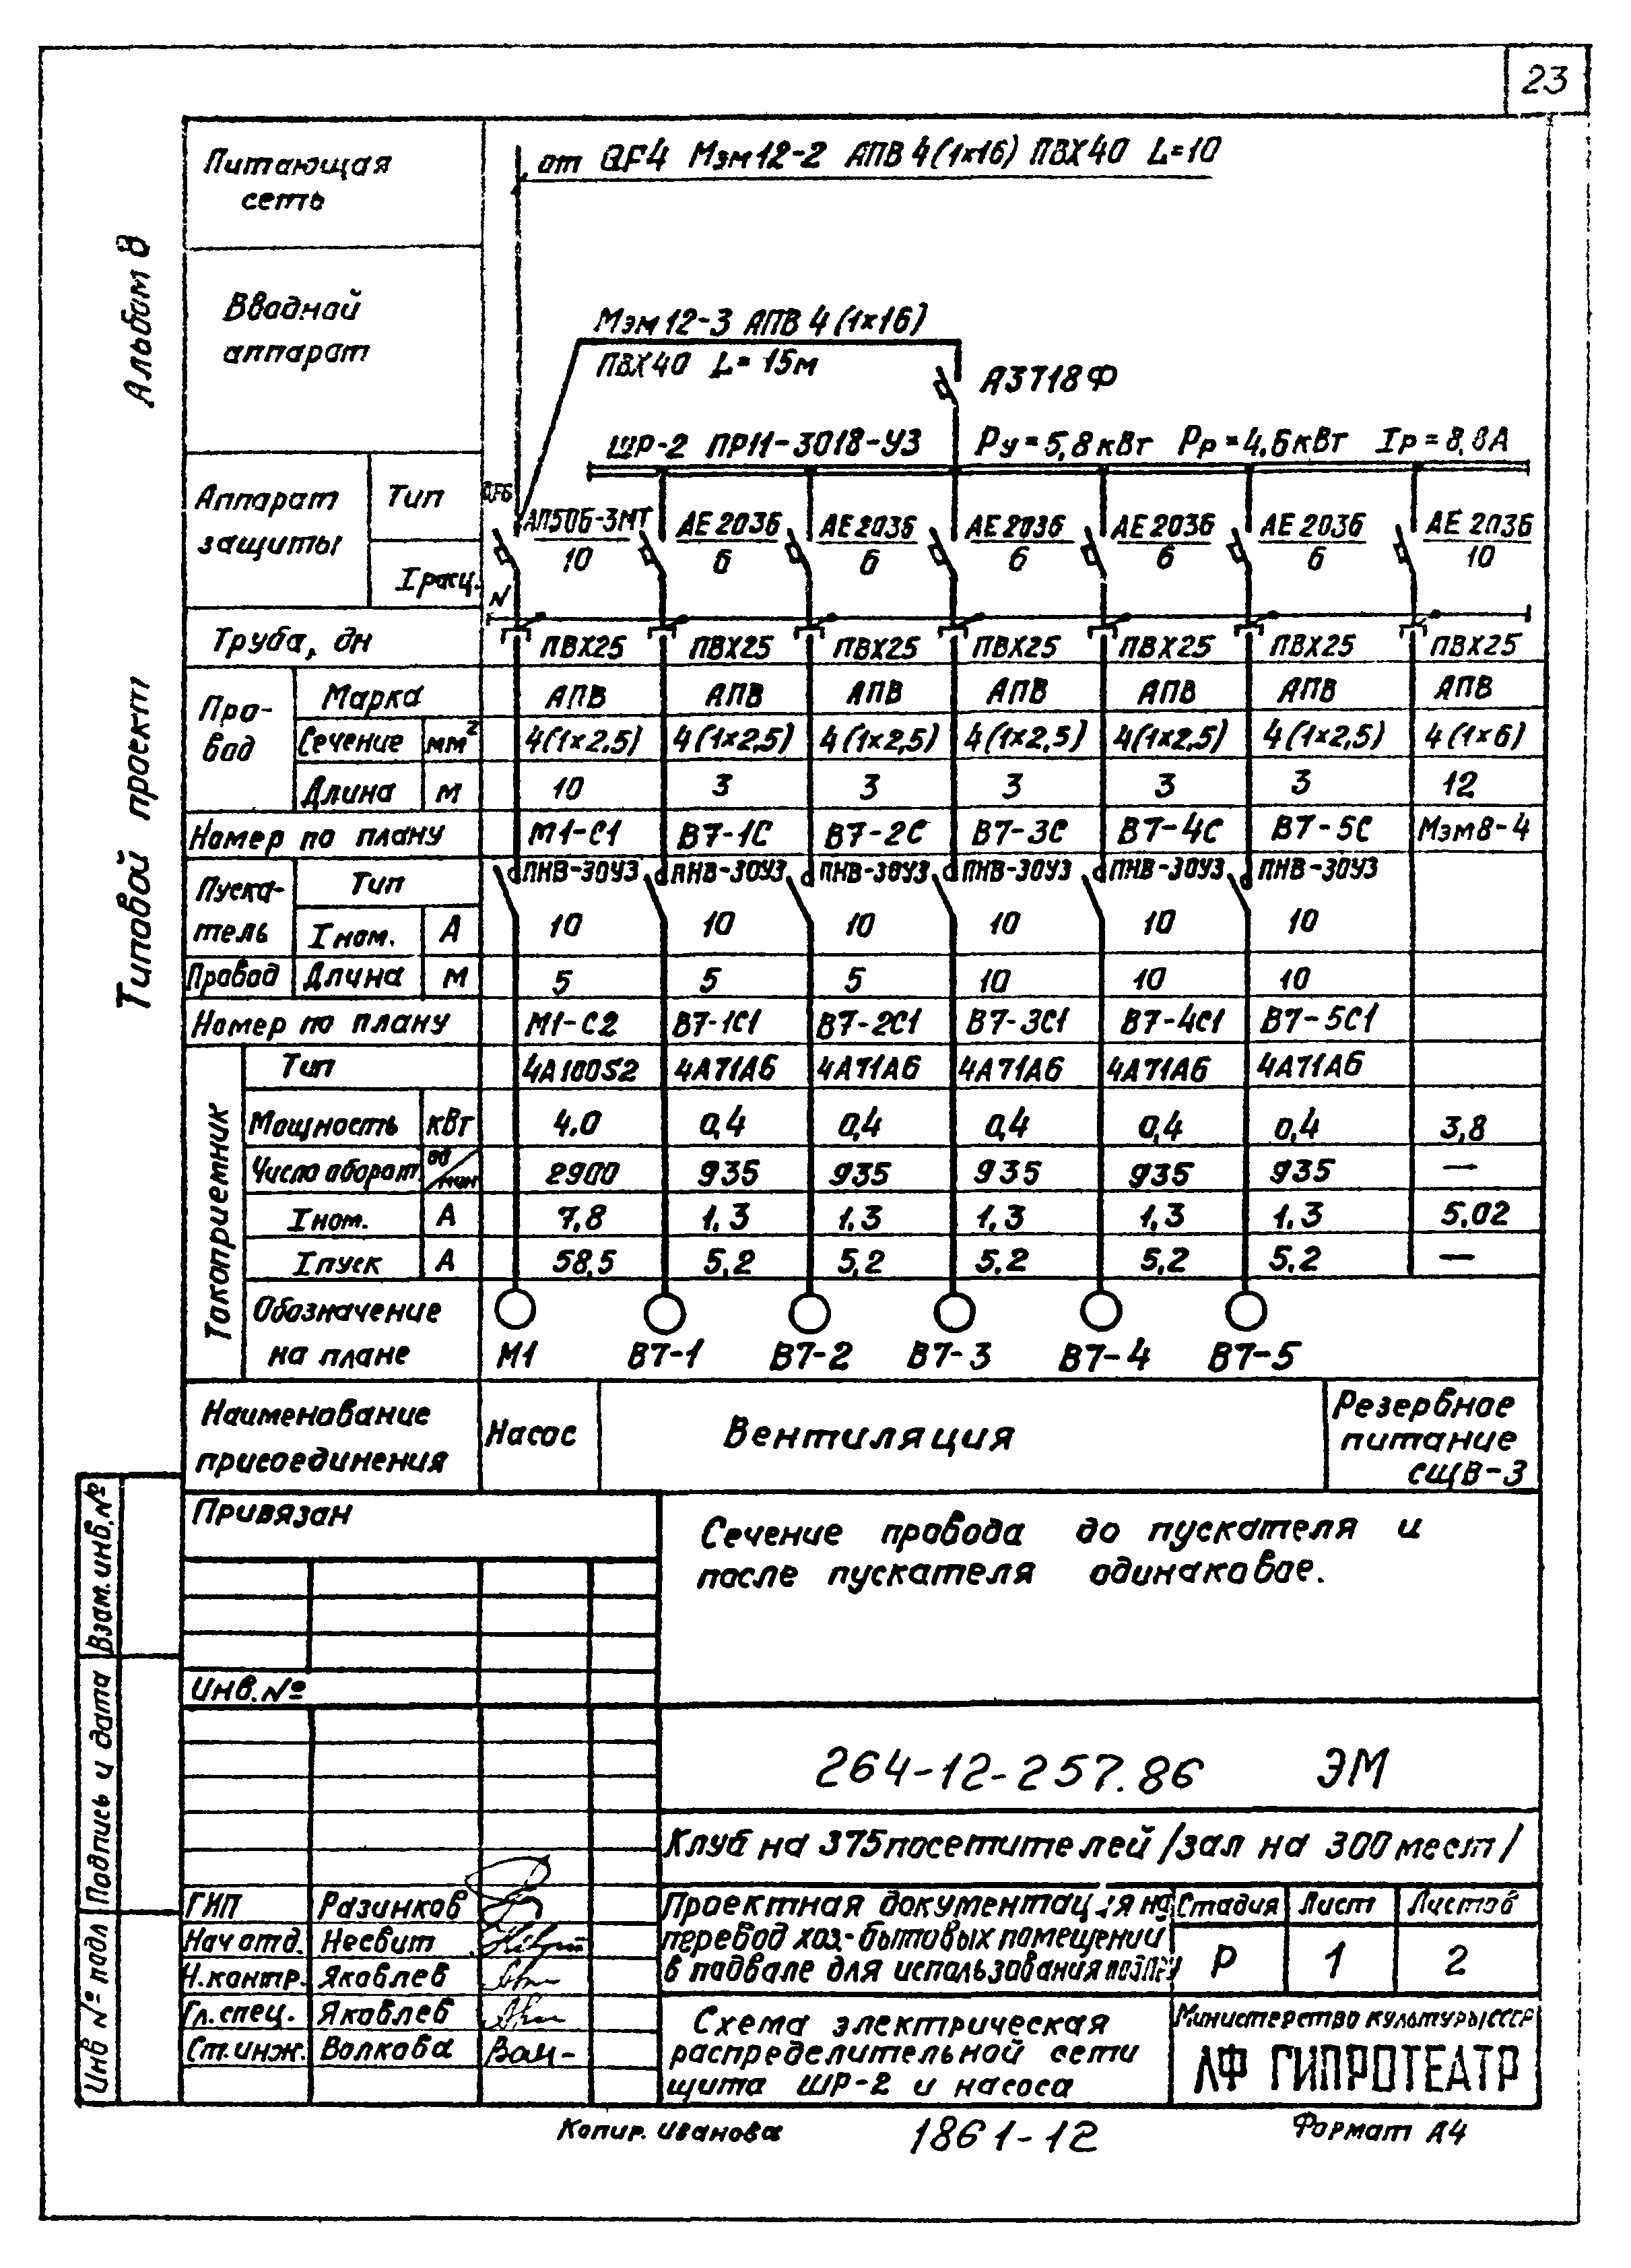 23
Альбом 8
Типовой проект
Питающая
сеть
от QF4 Мэм12-2 АПВ 4(1×16) ПВХ40 L=10
Вводной
аппарат
Мэм12-3 АПВ 4(1×16)
ПВХ40 L=15м
А3718Ф
ШР-2 ПР11-3018-У3 Ру=5,8кВт Рр=4,6кВт Iр=8,8А
Аппарат
защиты
Тип
Iрасц.
QF6
N
АП50Б-3МТ АЕ2036 АЕ2036 АЕ2036 АЕ2036 АЕ2036 АЕ2036
10 6 6 6 6 6 10
Труба, дн ПВХ25 ПВХ25 ПВХ25 ПВХ25 ПВХ25 ПВХ25 ПВХ25
Про-
вод
Марка АПВ АПВ АПВ АПВ АПВ АПВ АПВ
Сечение мм² 4(1×2,5) 4(1×2,5) 4(1×2,5) 4(1×2,5) 4(1×2,5) 4(1×2,5) 4(1×6)
Длина м 10 3 3 3 3 3 12
Номер по плану М1-С1 В7-1С В7-2С В7-3С В7-4С В7-5С Мэм8-4
Пуска-
тель
Тип ПНВ-30У3 ПНВ-30У3 ПНВ-30У3 ПНВ-30У3 ПНВ-30У3 ПНВ-30У3
Iном. А 10 10 10 10 10 10
Провод Длина м 5 5 5 10 10 10
Номер по плану М1-С2 В7-1С1 В7-2С1 В7-3С1 В7-4С1 В7-5С1
Токоприемник
Тип 4А100S2 4А71А6 4А71А6 4А71А6 4А71А6 4А71А6
Мощность кВт 4.0 0,4 0,4 0,4 0,4 0,4 3,8
Число оборот об/мин 2900 935 935 935 935 935 —
Iном. А 7,8 1,3 1,3 1,3 1,3 1,3 5,02
Iпуск А 58,5 5,2 5,2 5,2 5,2 5,2 —
Обозначение
на плане
М1 В7-1 В7-2 В7-3 В7-4 В7-5
Наименование
присоединения
Насос
Вентиляция
Резервное
питание
СЩВ-3
Привязан
Инв.№
Сечение провода до пускателя и
после пускателя одинаковое.
264-12-257.86 ЭМ
Клуб на 375 посетителей /зал на 300 мест/
ГИП Разинков
Нач отд. Несвит
Н.контр. Яковлев
Гл.спец. Яковлев
Ст.инж. Волкова
Проектная документация на
перевод хоз.-бытовых помещений
в подвале для использования под ПРУ
Стадия Лист Листов
Р 1 2
Схема электрическая
распределительной сети
щита ШР-2 и насоса
Министерство культуры СССР
ЛФ ГИПРОТЕАТР
Взам.инв.№
Подпись и дата
Инв № подл
Копир. Иванова
1861-12
Формат А4